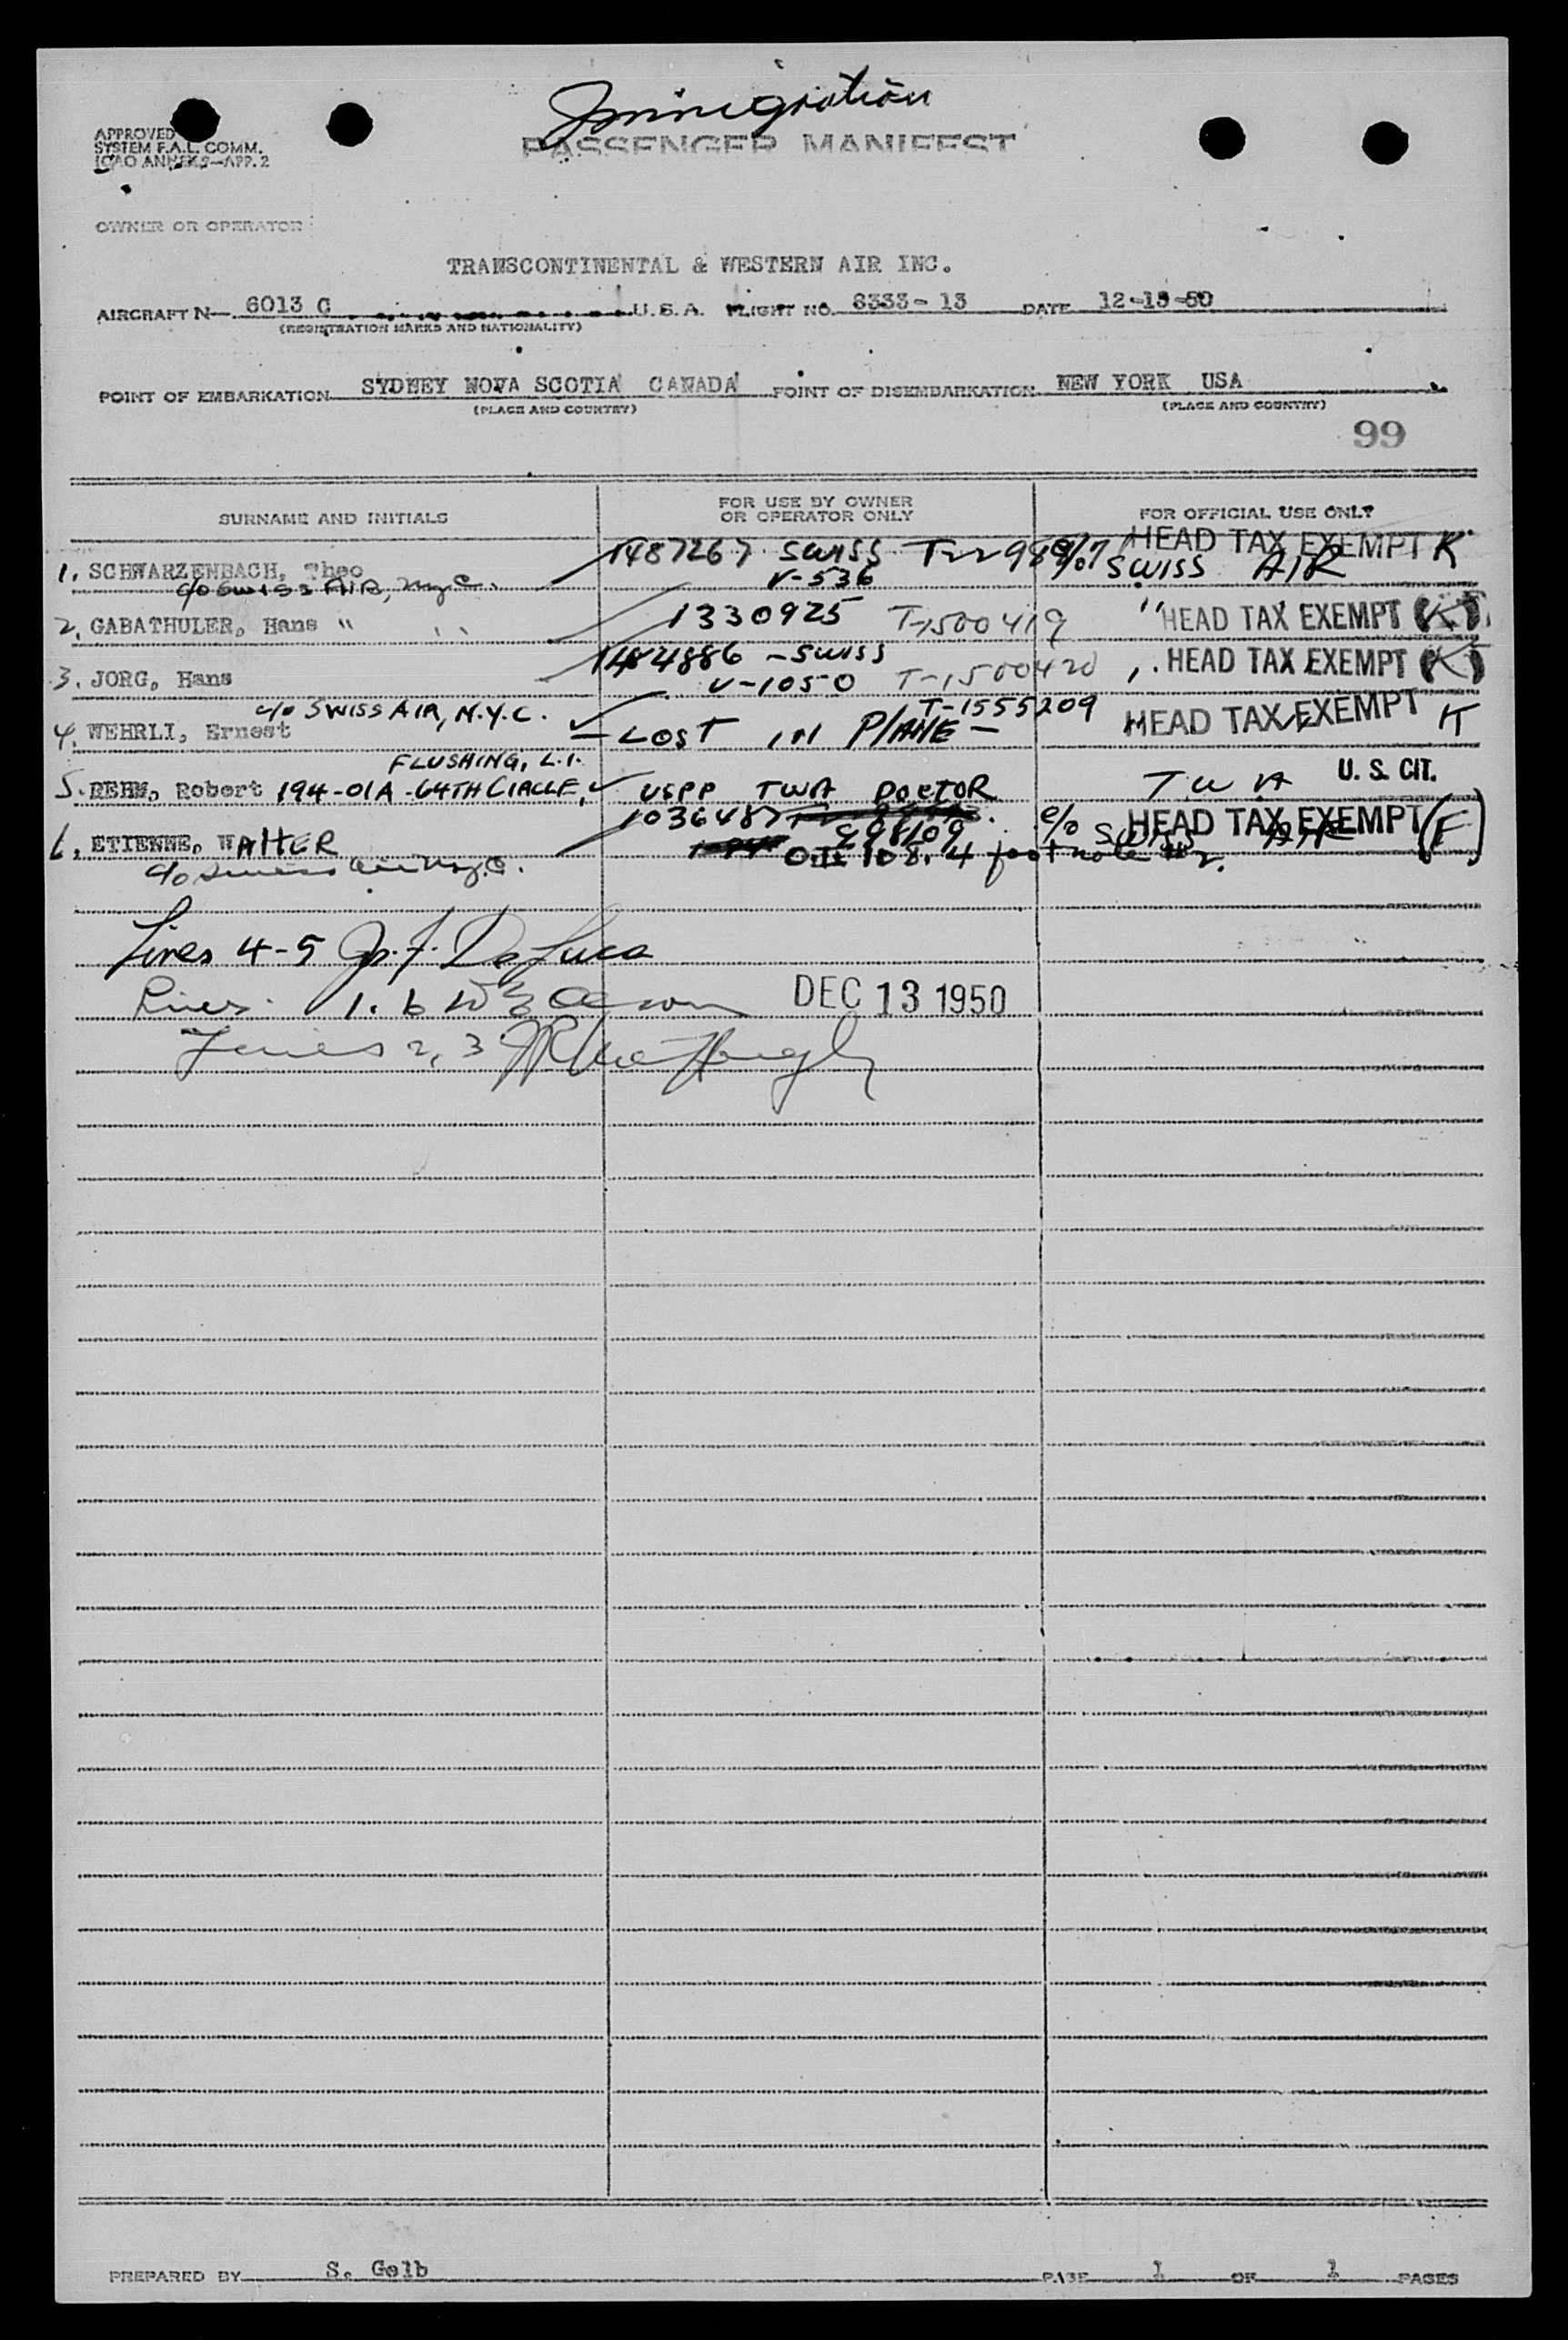 Immigration
PASSENGER MANIFEST
APPROVED
SYSTEM F.A.L. COMM.
ICAO ANNEX 9—APP. 2
OWNER OR OPERATOR
TRANSCONTINENTAL & WESTERN AIR INC.
AIRCRAFT N— 6013 C U.S.A. FLIGHT NO. 8333-13 DATE 12-13-50
(REGISTRATION MARKS AND NATIONALITY)
POINT OF EMBARKATION SYDNEY NOVA SCOTIA CANADA POINT OF DISEMBARKATION NEW YORK USA
(PLACE AND COUNTRY) (PLACE AND COUNTRY)
99
SURNAME AND INITIALS FOR USE BY OWNER OR OPERATOR ONLY FOR OFFICIAL USE ONLY
1. SCHWARZENBACH, Theo 1487267 SWISS HEAD TAX EXEMPT K
c/o SWISS AIR, N.Y.C. V-536 c/o SWISS AIR
2. GABATHULER, Hans " " 1330925 T-1500419 " HEAD TAX EXEMPT (K)
3. JORG, Hans 1484886 - SWISS HEAD TAX EXEMPT (K)
V-1050 T-1500420
c/o SWISS AIR, N.Y.C. T-1555209
4. WEHRLI, Ernest - LOST IN PLANE - HEAD TAX EXEMPT K
FLUSHING, L.I.
5. REHM, Robert 194-01A-64TH CIRCLE, USPP TWA DOCTOR T W A U. S. CIT.
6. ETIENNE, WALTER 1036487 c/o SWISS AIR HEAD TAX EXEMPT (F)
c/o Swiss Air N.Y.C. 998109
O.I. 108.4 footnote #2.
Lines 4-5 Jos. F. DeLuca
Lines 1. 6 DEC 13 1950
Lines 2, 3
PREPARED BY S. Gelb PAGE 1 OF 1 PAGES